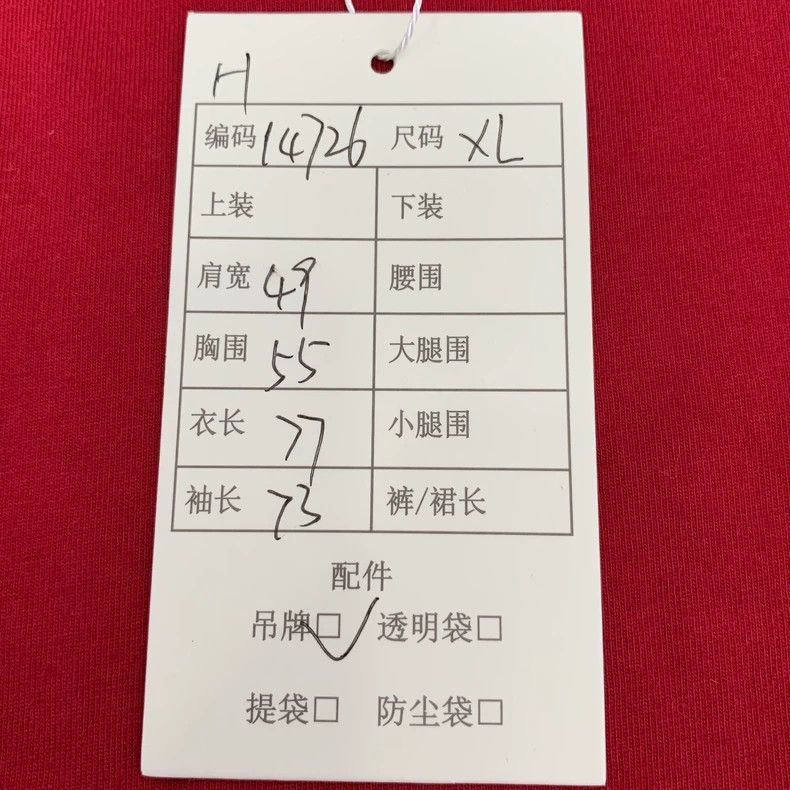 H
编码 14726 尺码 XL
上装 下装
肩宽 49 腰围
胸围 55 大腿围
衣长 77 小腿围
袖长 73 裤/裙长
配件
吊牌□✓ 透明袋□
提袋□ 防尘袋□